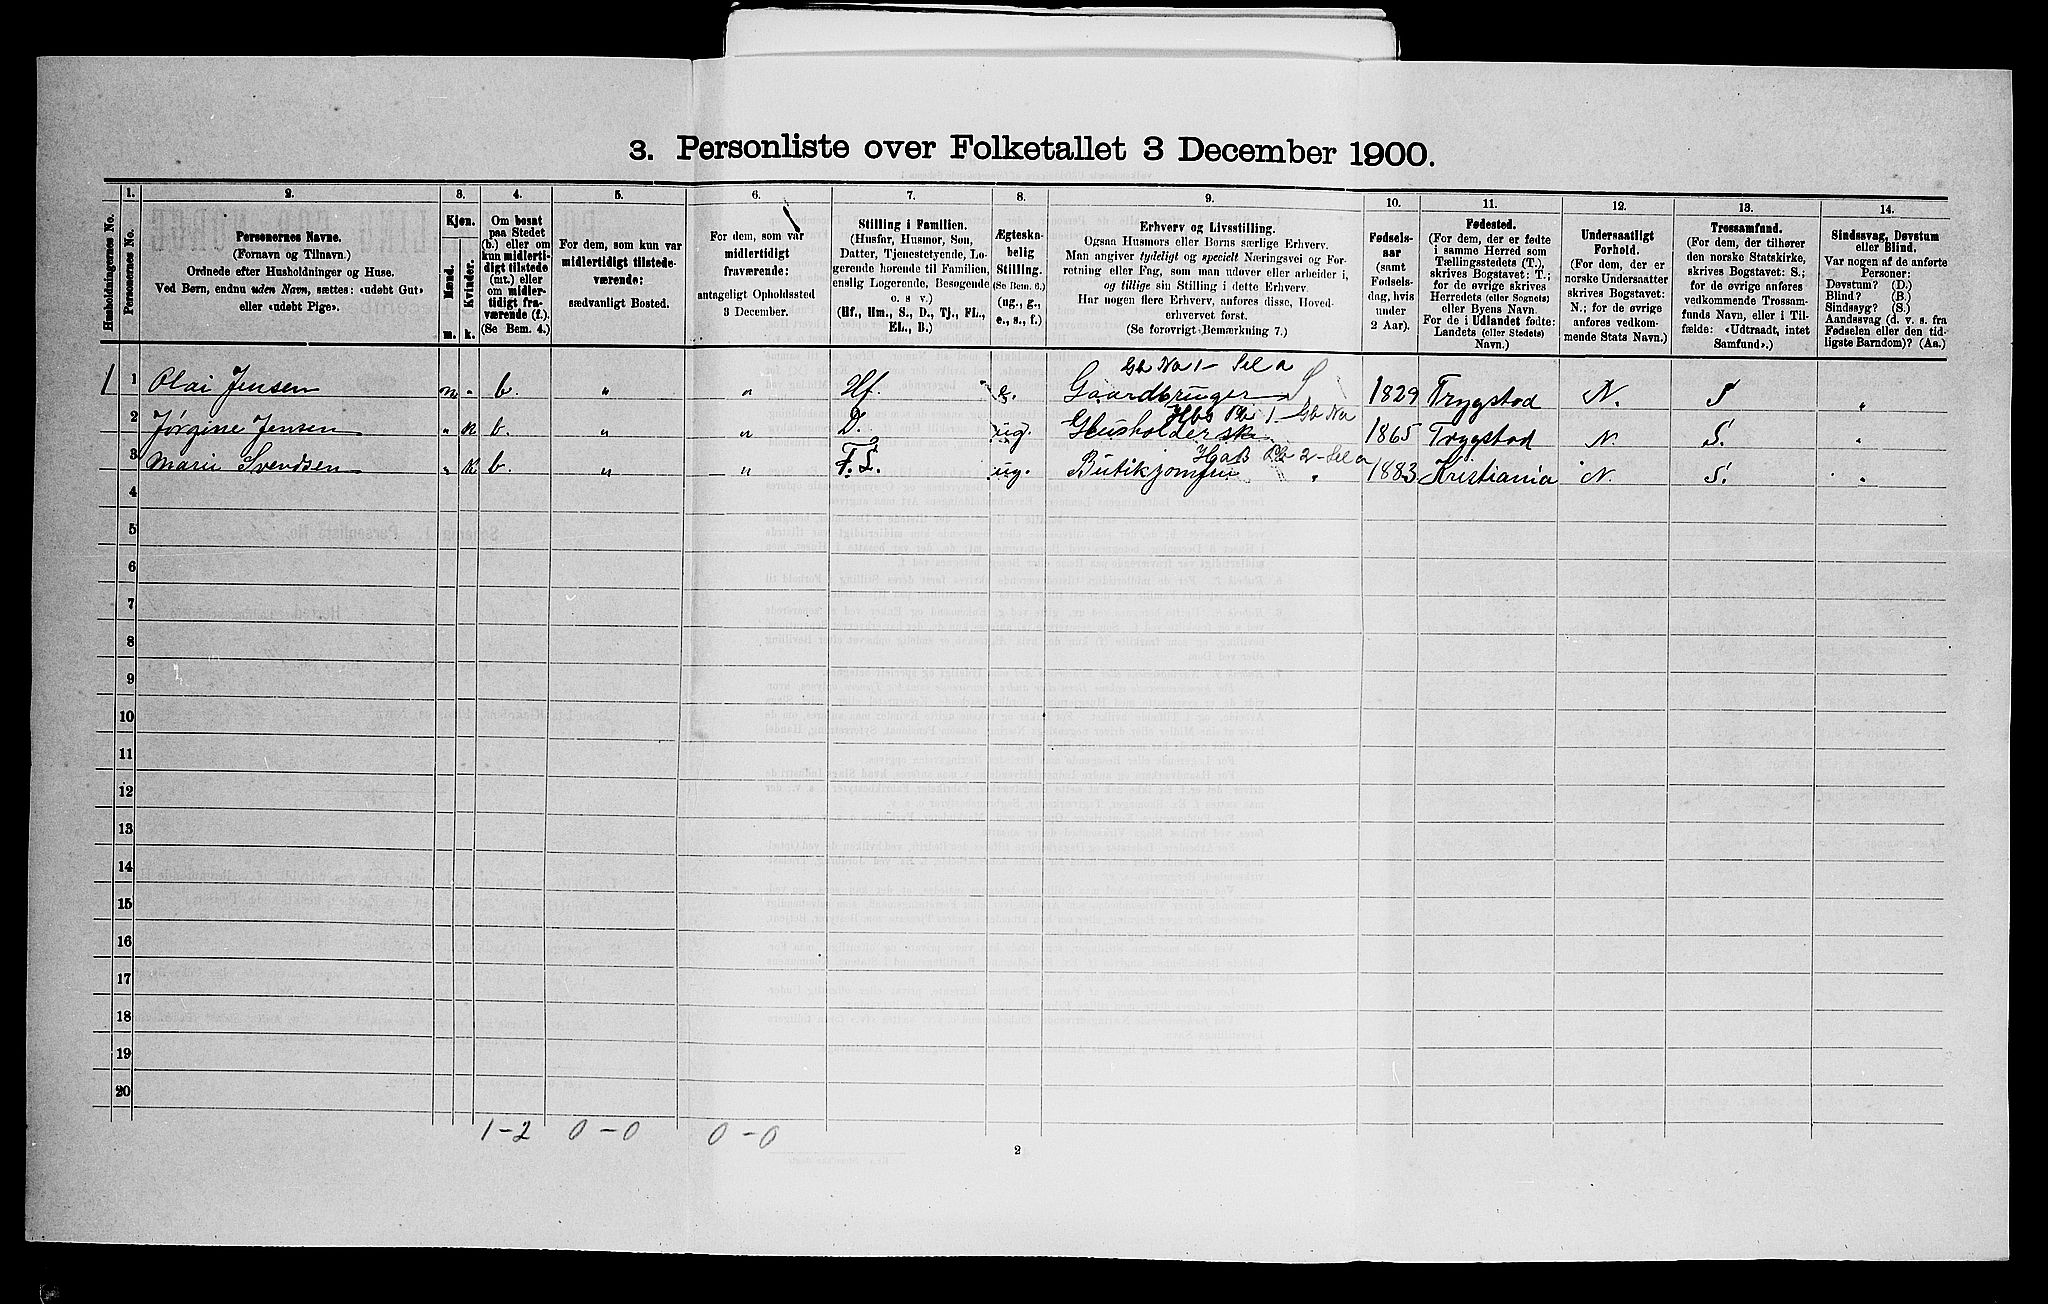 3. Personliste over Folketallet 3 December 1900.
1. 2. 3. 4. 5. 6. 7. 8. 9. 10. 11. 12. 13. 14.
Husholdningernes No.
Personernes No.
Personernes Navne.
(Fornavn og Tilnavn.)
Ordnede efter Husholdninger og Huse.
Ved Børn, endnu uden Navn, sættes: «udøbt Gut»
eller «udøbt Pige».
Kjøn.
Mænd.
Kvinder.
m. k.
Om bosat
paa Stedet
(b.) eller om
kun midlerti-
digt tilstede
(mt.) eller
om midler-
tidigt fra-
værende (f.).
(Se Bem. 4.)
For dem, som kun var
midlertidigt tilstede-
værende:
sædvanligt Bosted.
For dem, som var
midlertidigt
fraværende:
antageligt Opholdssted
3 December.
Stilling i Familien.
(Husfar, Husmor, Søn,
Datter, Tjenestetyende, Lo-
gerende hørende til Familien,
enslig Logerende, Besøgende
o. s v.)
(Hf., Hm., S., D., Tj., FL.,
EL., B.)
Ægteska-
belig
Stilling.
(Se Bem. 6.)
(ug., g.,
e., s., f.)
Erhverv og Livsstilling.
Ogsaa Husmors eller Børns særlige Erhverv.
Man angiver tydeligt og specielt Næringsvei og For-
retning eller Fag, som man udøver eller arbeider i,
og tillige sin Stilling i dette Erhverv.
Har nogen flere Erhverv, anføres disse, Hoved-
erhvervet først.
(Se forøvrigt Bemærkning 7.)
Fødsels-
aar
(samt
Fødsels-
dag, hvis
under
2 Aar).
Fødested.
(For dem, der er fødte
i samme Herred som
Tællingsstedets (T.),
skrives Bogstavet: T.;
for de øvrige skrives
Herredets (eller Sognets)
eller Byens Navn.
For de i Udlandet fødte:
Landets (eller Stedets)
Navn.)
Undersaatligt
Forhold.
(For dem, der er
norske Undersaatter
skrives Bogstavet:
N.; for de øvrige
anføres vedkom-
mende Stats Navn.)
Trossamfund.
(For dem, der tilhører
den norske Statskirke,
skrives Bogstavet: S.;
for de øvrige anføres
vedkommende Trossam-
funds Navn, eller i Til-
fælde: «Udtraadt, intet
Samfund».)
Sindssvag, Døvstum
eller Blind.
Var nogen af de anførte
Personer:
Døvstum? (D.)
Blind? (B.)
Sindssyg? (S.)
Aandssvag (d. v. s. fra
Fødselen eller den tid-
ligste Barndom)? (Aa.)
1 1 Olai Jensen m " b. " " Hf. e. Gaardbruger 1829 Trygstad N. S "
2 Jørgine Jensen " k b. " " D. ug. Husholderske 1865 Trygstad N. S. "
3 Marie Svendsen " k b. " " F.L. ug. Butikjomfru " 1883 Kristiania N. S. "
4
5
6
7
8
9
10
11
12
13
14
15
16
17
18
19
20
1-2 0-0 0-0
2